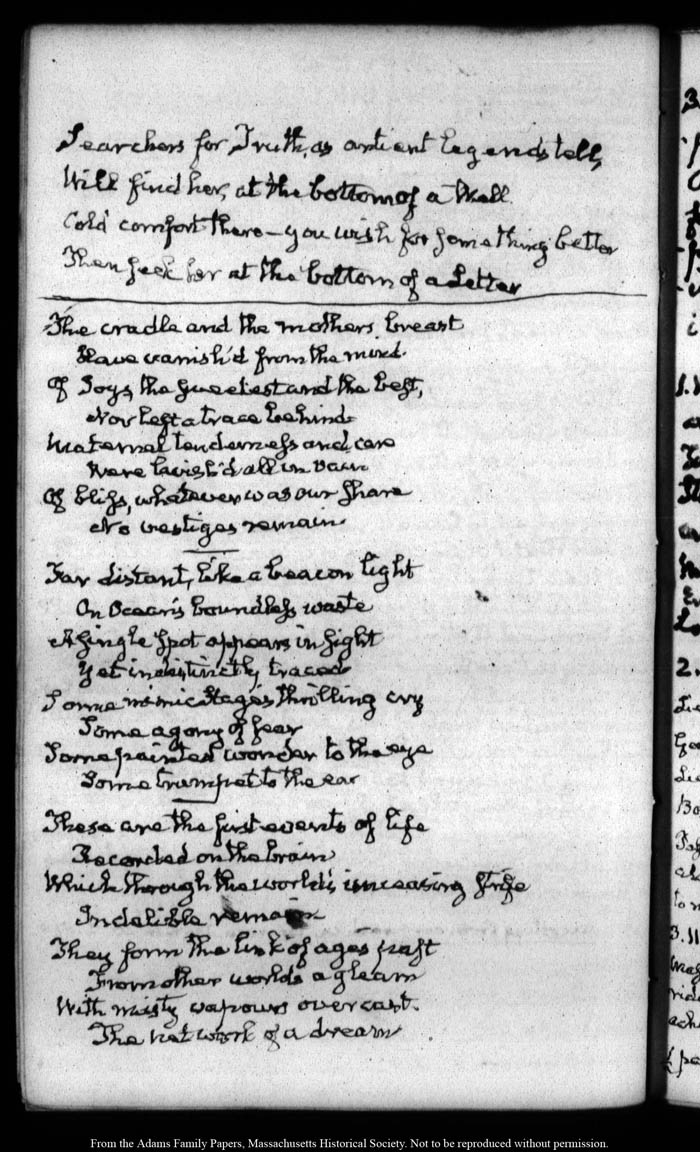 Searchers for Truth, as antient legends tell,
Will find her, at the bottom of a Well.
Cold comfort there – you wish for something better
Then seek her at the bottom of a Letter
The cradle and the mothers breast
Have vanish'd from the mind.
Of Joys, the sweetest and the best,
Nor left a trace behind
Maternal tenderness and care
Were lavish'd all in vain
Of bliss, whatever was our share
No vestiges remain.
Far distant, like a beacon light
On Ocean's boundless waste
A single spot appears in sight
Yet indistinctly traced
Some mimic Stage's thrilling cry
Some agony of fear
Some painted wonder to the eye
Some trumpet to the ear
These are the first events of life
Recorded on the brain
Which through the world's unceasing strife
Indelible remain
They form the link of ages past
From other worlds a gleam
With misty vapours overcast.
The net work of a dream
From the Adams Family Papers, Massachusetts Historical Society. Not to be reproduced without permission.